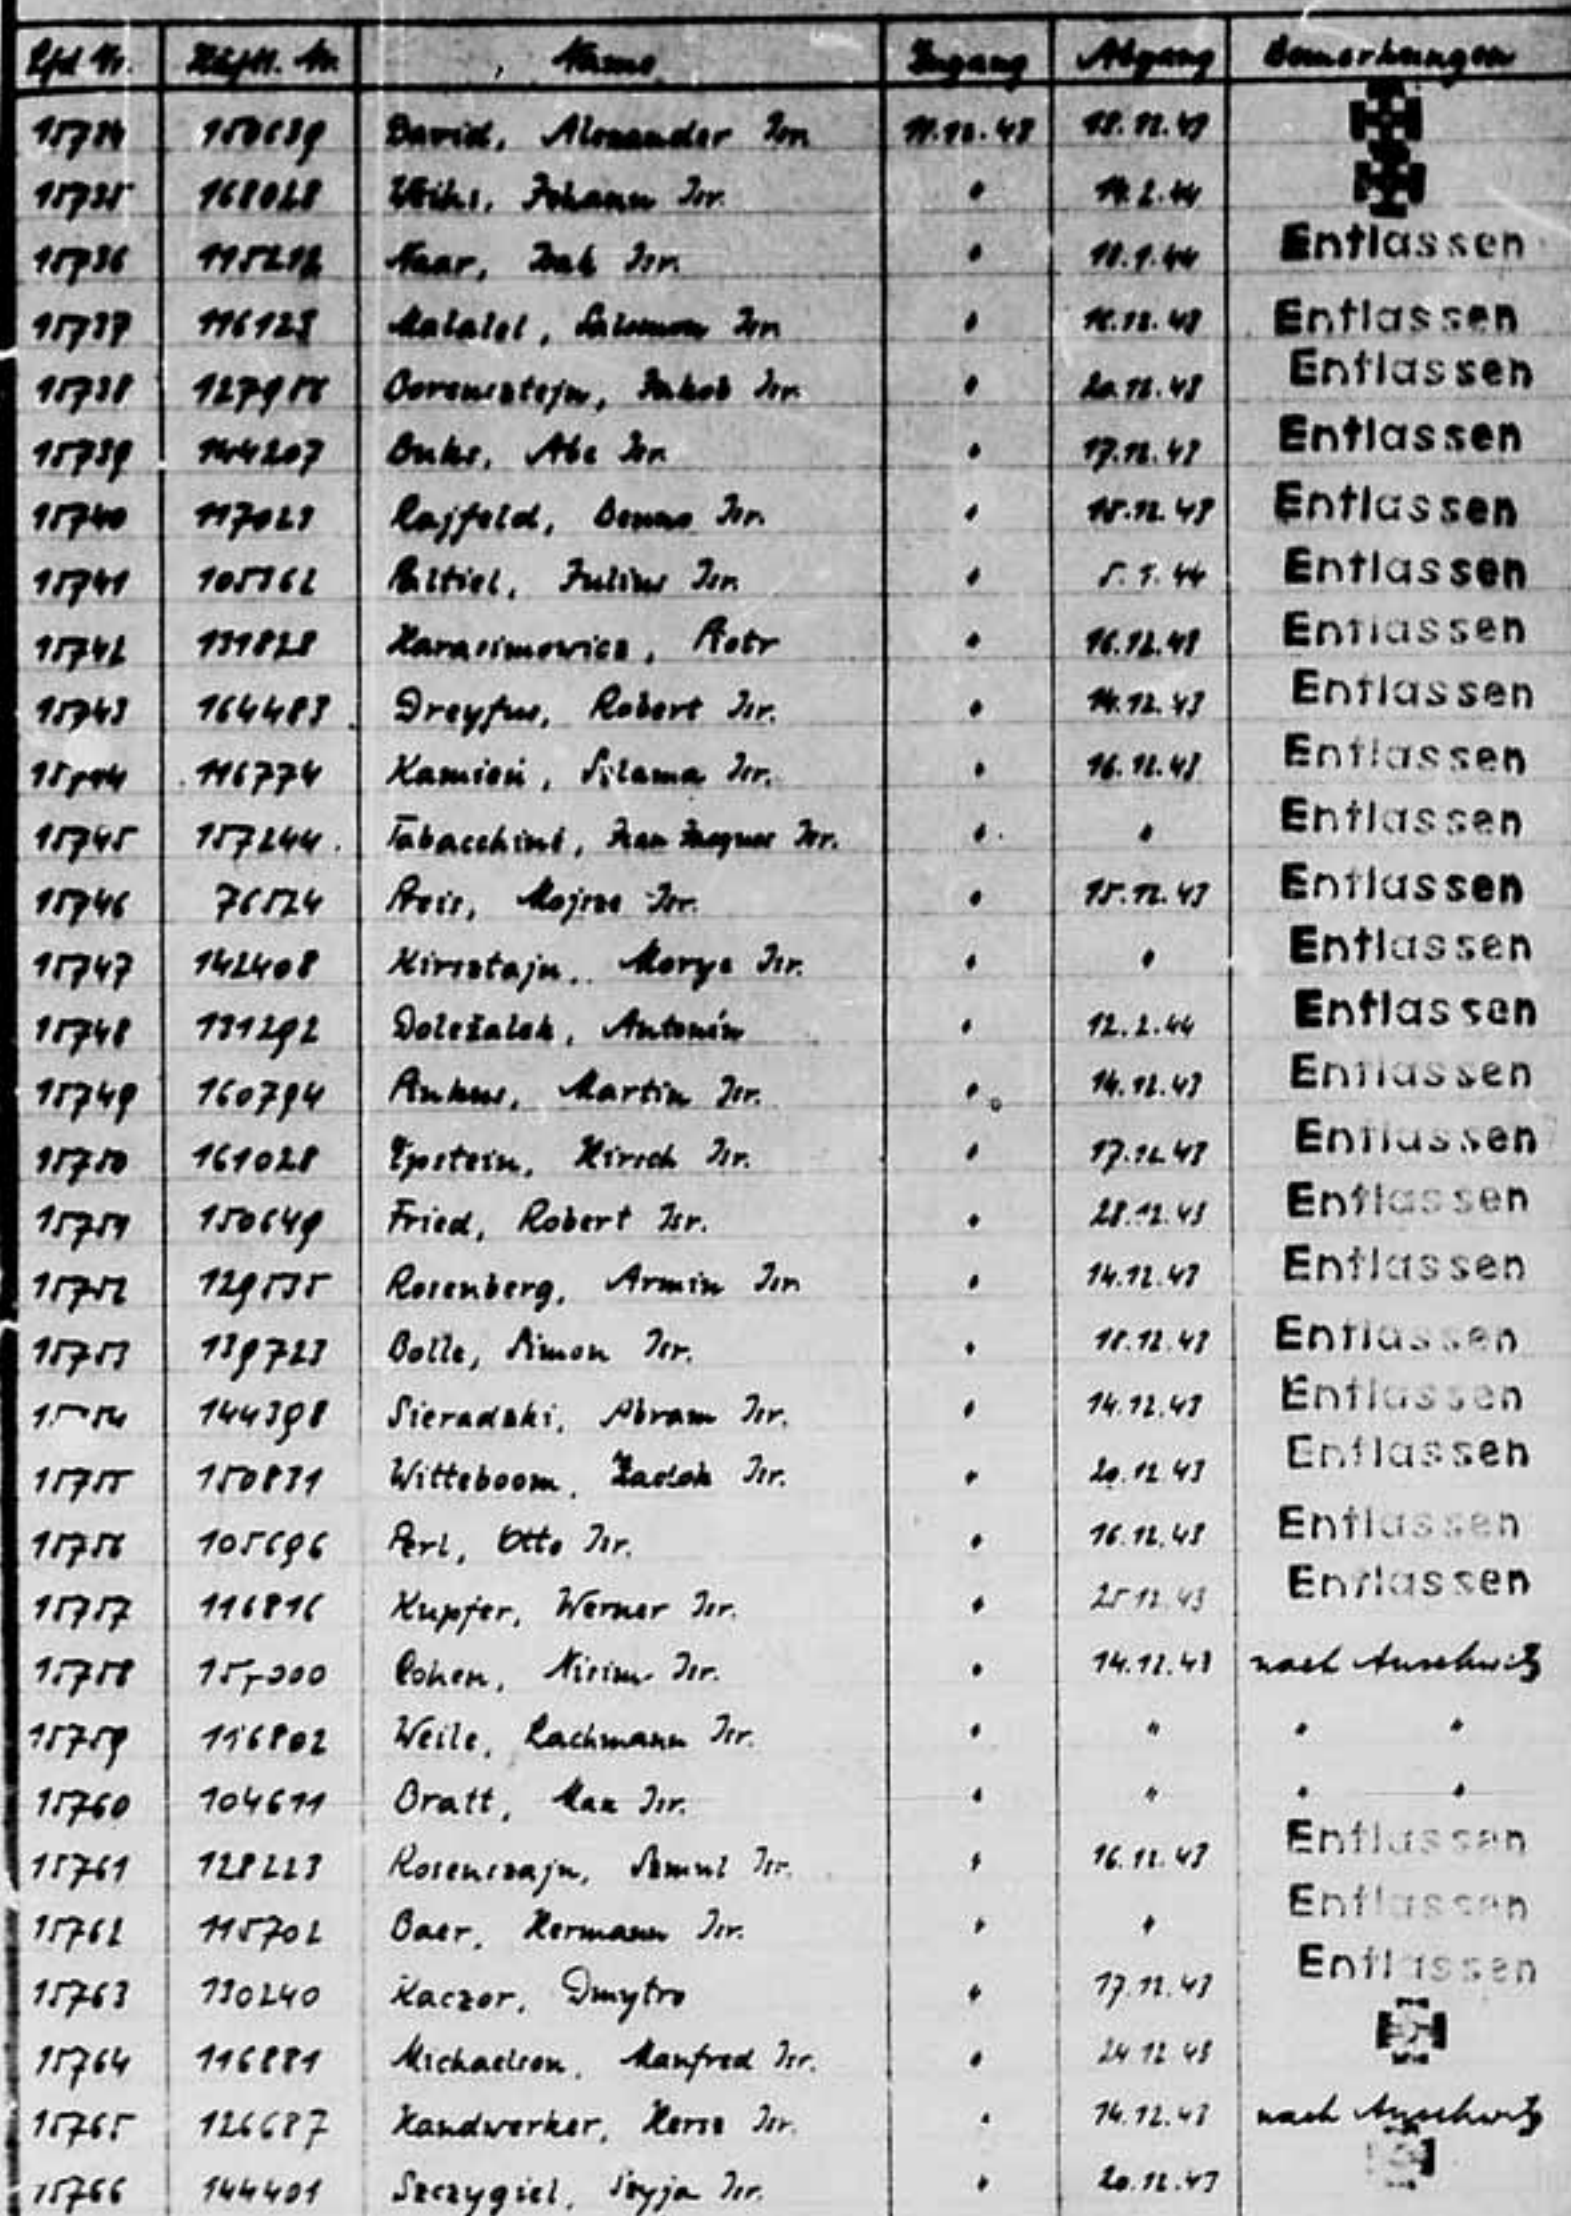 Lfd Nr. Häftl. Nr. Name Zugang Abgang Bemerkungen
15734 150639 David, Alexander Isr. 11.12.43 18.12.43
15735 168028 Johann Isr. " 14.2.44
15736 Naar, Isr. " 18.1.44 Entlassen
15737 116123 Salomon Isr. " Entlassen
15738 Jakob Isr. " 20.12.43 Entlassen
15739 144207 Abe Isr. " 17.12.43 Entlassen
15740 117023 Rajfeld, Benno Isr. " 18.12.43 Entlassen
15741 105362 Paltiel, Julius Isr. " 5.1.44 Entlassen
15742 131828 Harasimowicz, Piotr " 16.12.43 Entlassen
15743 164483 Dreyfus, Robert Isr. " 14.12.43 Entlassen
15744 116774 Kamień, Szlama Isr. " 16.12.43 Entlassen
15745 157244 Jean Jacques Isr. " " Entlassen
15746 76524 Isr. " 15.12.43 Entlassen
15747 142408 Kirsztajn, Isr. " " Entlassen
15748 131292 Doležalek, Antonín " 12.2.44 Entlassen
15749 160794 Martin Isr. " 14.12.43 Entlassen
15750 161028 Epstein, Hirsch Isr. " 17.12.43 Entlassen
15751 150649 Fried, Robert Isr. " 28.12.43 Entlassen
15752 129535 Rosenberg, Armin Isr. " 14.12.43 Entlassen
15753 139723 Bolle, Simon Isr. " 18.12.43 Entlassen
144398 Sieradzki, Abram Isr. " 14.12.43 Entlassen
15755 150831 Witteboom, Zadok Isr. " 20.12.43 Entlassen
15756 105696 Perl, Otto Isr. " 16.12.43 Entlassen
15757 116816 Kupfer, Werner Isr. " 25.12.43 Entlassen
15758 Cohen, Nissim Isr. " 14.12.43 nach Auschwitz
15759 116802 Weile, Lachmann Isr. " " " "
15760 104611 Bratt, Max Isr. " " " "
15761 128223 Rosenszajn, Szmul Isr. " 16.12.43 Entlassen
15762 115702 Baer, Hermann Isr. " " Entlassen
15763 130240 Kaczor, Dmytro " 17.12.43 Entlassen
15764 116881 Michaelson, Manfred Isr. " 24.12.43
15765 126687 Handwerker, Hersz Isr. " 14.12.43 nach Auschwitz
15766 144401 Szczygiel, Szyja Isr. " 20.12.43